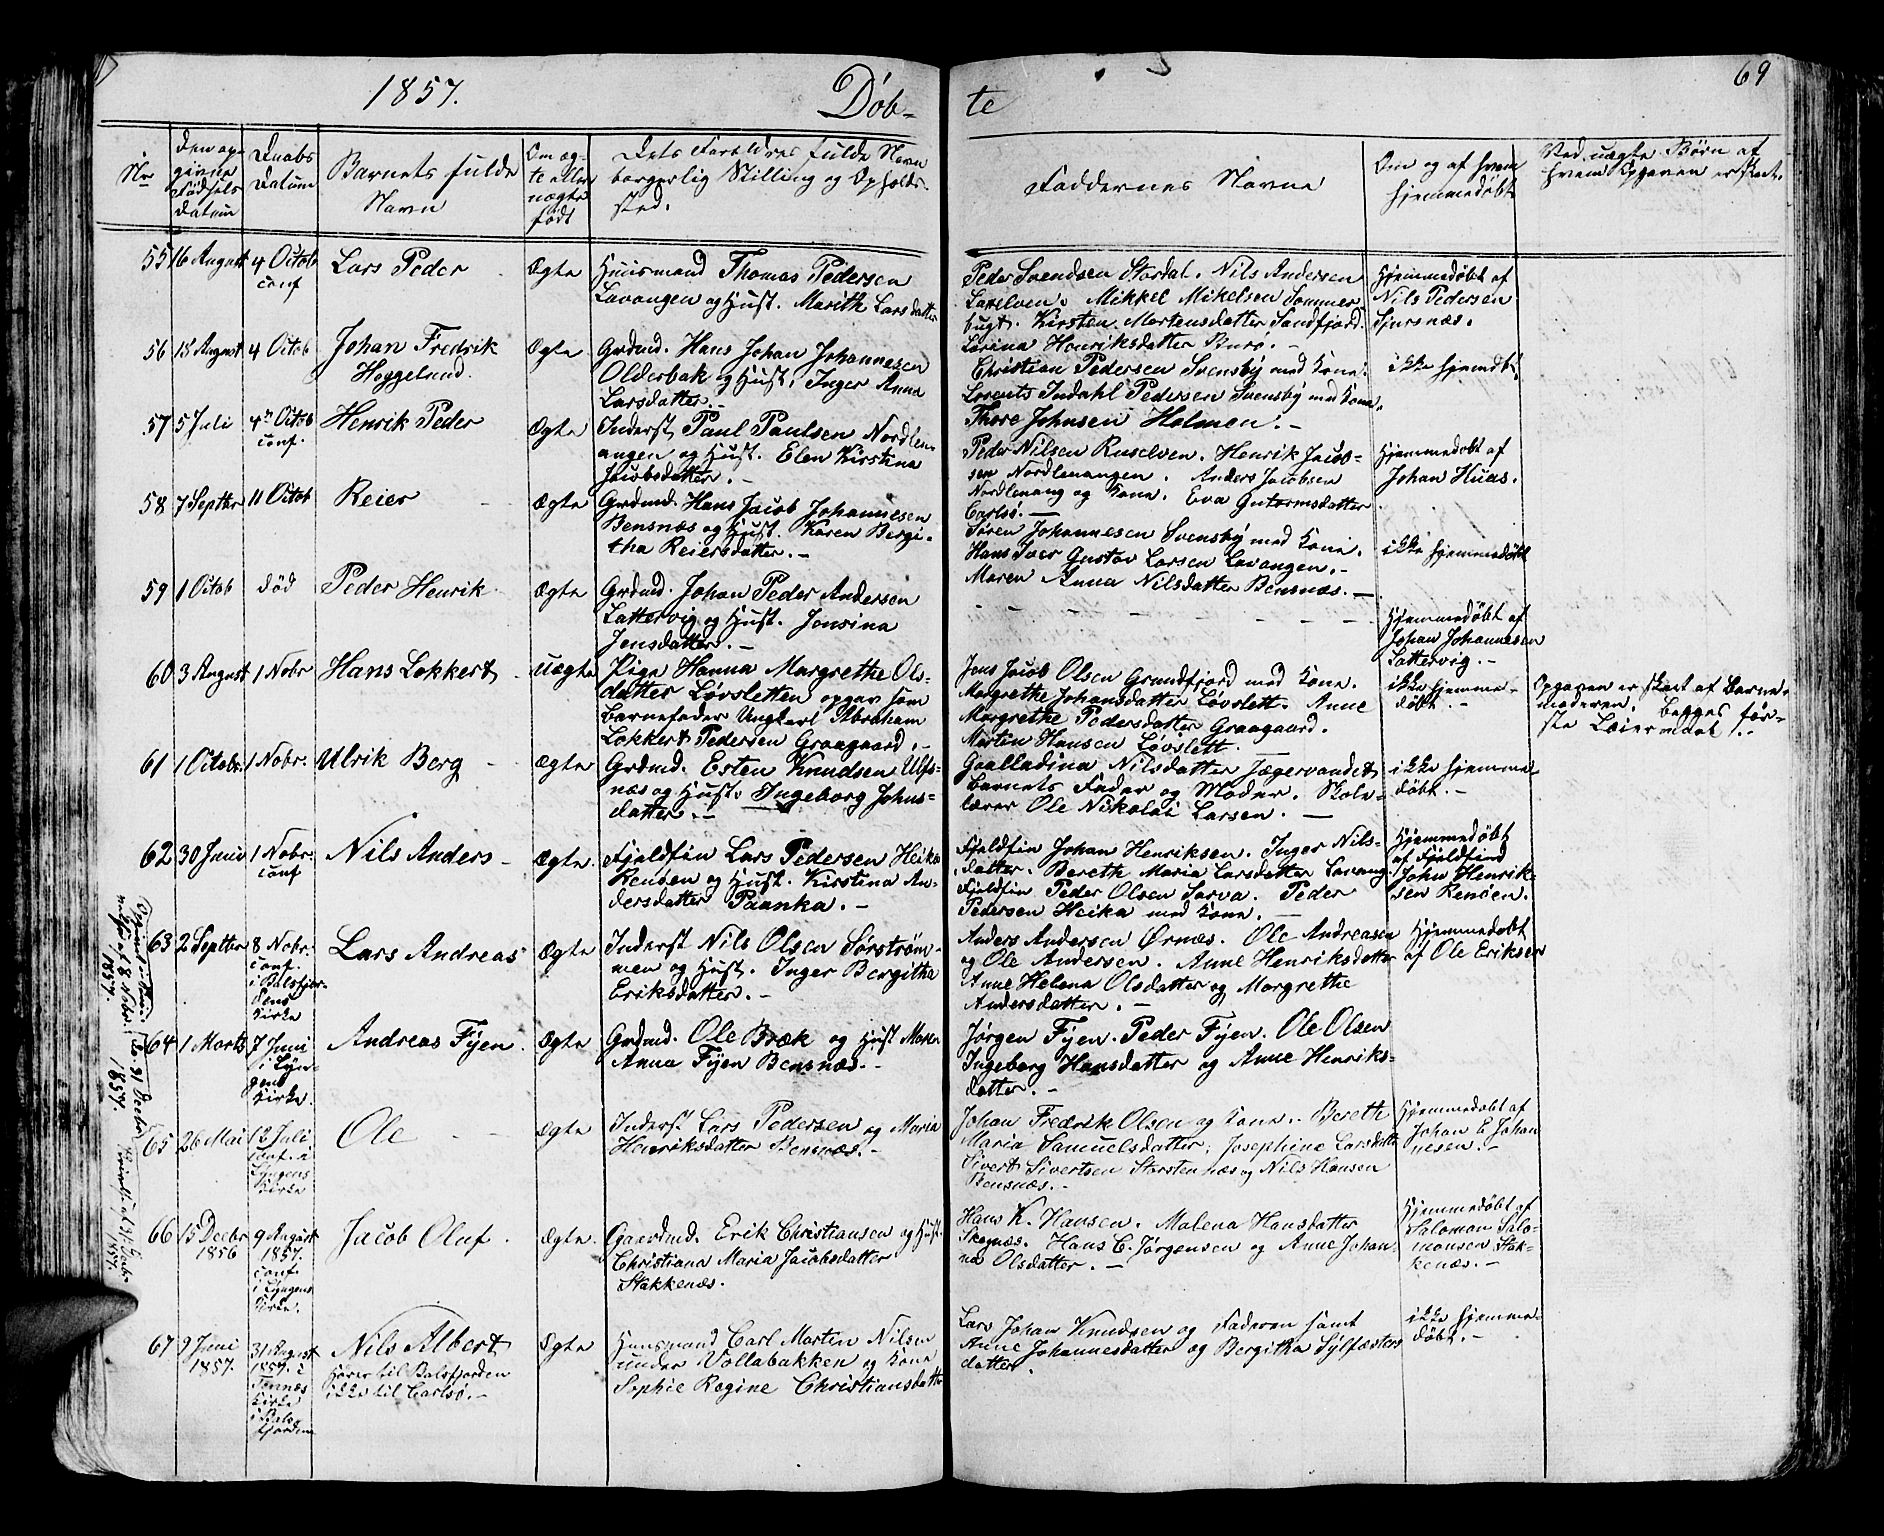 1857.
Døb-
te
69
No
den op-
givne
Fødsels
datum
Daabs
Datum
Barnets fulde
Navn
Om æg-
te eller
uægte
født
Dets Forældres fulde Navn
borgerlig Stilling og Opholds-
sted.
Faddernes Navne
Om og af hvem
hjemmedøbt
Ved uægte Børn af
hvem Opgaven er skeet.
55 16 August 4 Octob conf Lars Peder Ægte
Huusmand Thomas Pedersen
Lavangen og Hust. Marith Larsdatter
Peder Svendsen Stordal. Nils Andersen
Lavelven. Mikkel Mikelsen Sommer
bugt. Kirsten Mortensdatter Sandfjord.
Lorina Henriksdatter Burø. -
Hjemmedøbt af
Nils Pedersen
Sjursnæs.
56 18 August 4 Octob Johan Fredrik
Heggelund. Ægte
Grdmd. Hans Johan Johannesen
Olderbak og Hust. Inger Anna
Larsdatter. -
Christian Pedersen Svensby med Kone.
Lorents Indahl Pedersen Svensby med Kone.
Thore Johnsen Holmen. -
ikke hjemdbt.
57 5 Juli 4de Octob conf. Henrik Peder Ægte
Inderst Paul Paulsen Nordlen-
angen og Hust. Elen Kirstina
Jacobsdatter. -
Peder Nilsen Ruselven. Henrik Jacob-
sen Nordlenangen. Anders Jacobsen
Nordlenang og Kone. Eva Guttormsdatter
Carlsø. -
Hjemmedøbt af
Johan Huus.
58 7 Septbr 11 Octob Reier - Ægte
Grdmd. Hans Jacob Johannesen
Bensnæs og Hust. Karen Bergi-
tha Reiersdatter. -
Søren Johannesen Svensby med Kone.
Hans Iver Gustav Larsen Lavangen. -
Maren Anna Nilsdatter Bensnæs. -
ikke hjemmedøbt
59 1 Octob død Peder Henrik. Ægte
Grdmd. Johan Peder Andersen
Lattervig og Hust. Jonsina
Jensdatter. -
- - - - - - -
Hjemmedøbt af
Johan Johannesen
Lattervig. -
60 3 August 1 Nobr Hans Lokkert - uægte
Pige Hanna Margrethe Ols-
datter Løvsletten opgav som
Barnefader Ungkarl Abraham
Lokkert Pedersen Graagaard. -
Jens Jacob Olsen Grundfjord med Kone.
Margrethe Johansdatter Løvslett. Anne
Margrethe Pedersdatter Graagaard.
Martin Hansen Løvslett.
ikke hjemme-
døbt. -
Opgaven er skeet af Barne-
moderen. Begges før-
ste Leiermaal. -
61 1 Octobr. 1 Nobr. Ulrik Berg - Ægte
Grdmd. Esten Knudsen Ulfs-
næs og Hust. Ingeborg Johns-
datter. -
Gaalladina Nilsdatter Jægervandet
Barnets Fader og Moder. Skole-
lærer Ole Nikolai Larsen. -
ikke hjemme-
døbt. -
62 30 Juni 1 Nobr. conf Nils Anders - Ægte.
Fjeldfin Lars Pedersen Heika
Renøen og Hust. Kirstina An-
dersdatter Paanka. -
Fjeldfin Johan Henriksen. Inger Nils-
datter. Bereth Maria Larsdatter Lavang.
Fjeldfin Peder Olsen Sarva. Peder
Pedersen Heika med Kone. -
Hjemmedøbt
af Fjeldfind
John Henrik-
sen Renøen.
63 2 Septbr 8 Nobr.
conf.
i Balsfjor-
dens
Kirke
Lars Andreas Ægte
Inderst Nils Olsen Sørstrøm-
men og Hust. Inger Bergitha
Eriksdatter. -
Anders Andersen Ørnes. Ole Andreasen
og Ole Andersen. Anne Henriksdatter
Anne Helena Olsdatter og Margrethe
Andersdatter. -
Hjemmedøbt
af Ole Eriksen
64 1 Marts 7 Juni
i Lyn-
gens
Kirke.
Andreas Fyen. Ægte
Grdmd. Ole Bæk og Hust Maren
Anna Fyen Bensnæs. -
Jørgen Fyen. Peder Fyen. Ole Olsen
Ingeborg Hansdatter og Anne Henriks-
datter. -
65 26 Mai 12 Juli
conf. i
Lyngens
Kirke
Ole - - Ægte
Inderst Lars Pedersen og Maria
Henriksdatter Bensnæs. -
Johan Fredrik Olsen og Kone. Bereth
Maria Samuelsdatter, Josephine Larsdatter
Sivert Sivertsen Storstennæs og Nils Hansen
Bensnæs. -
Hjemmedøbt af
Johan E Johan
nesen. -
66 15 Decbr
1856
9 August
1857.
conf
i Lyngens
Kirke.
Jacob Oluf. Ægte.
Gaardmd. Erik Christiansen og Hust.
Christiana Maria Jacobsdatter
Stakkenæs.
Hans K. Hansen. Malena Hansdatter
Skognæs. Hans C. Jørgensen og Anne Johan-
na Olsdatter. -
Hjemmedøbt af
Salomon Salo-
monsen Stak-
kenæs. -
67 9 Juni
1857.
31 August
1857. i
Tennes
Kirke
i Bals-
fjorden
Nils Albert
hører til Balsfjorden
ikke til Carlsø. -
Ægte
Huusmand Carl Martin Nilsen
under Vollabakken og Kone
Sophie Regine Christiansdatter
Lars Johan Knudsen og Faderen samt
Anne Johannesdatter og Bergitha Sylfæsters
datter.
ikke hjemme-
døbt. -